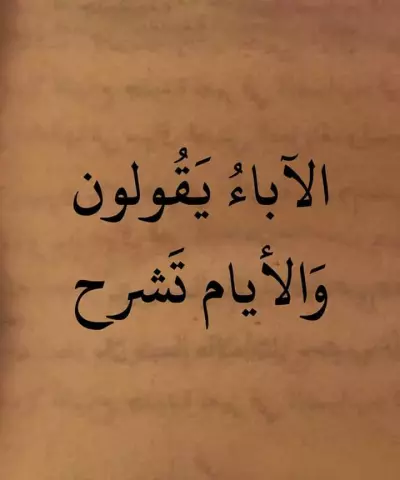 الآباءُ يَقُولون
وَالأيام تَشرح